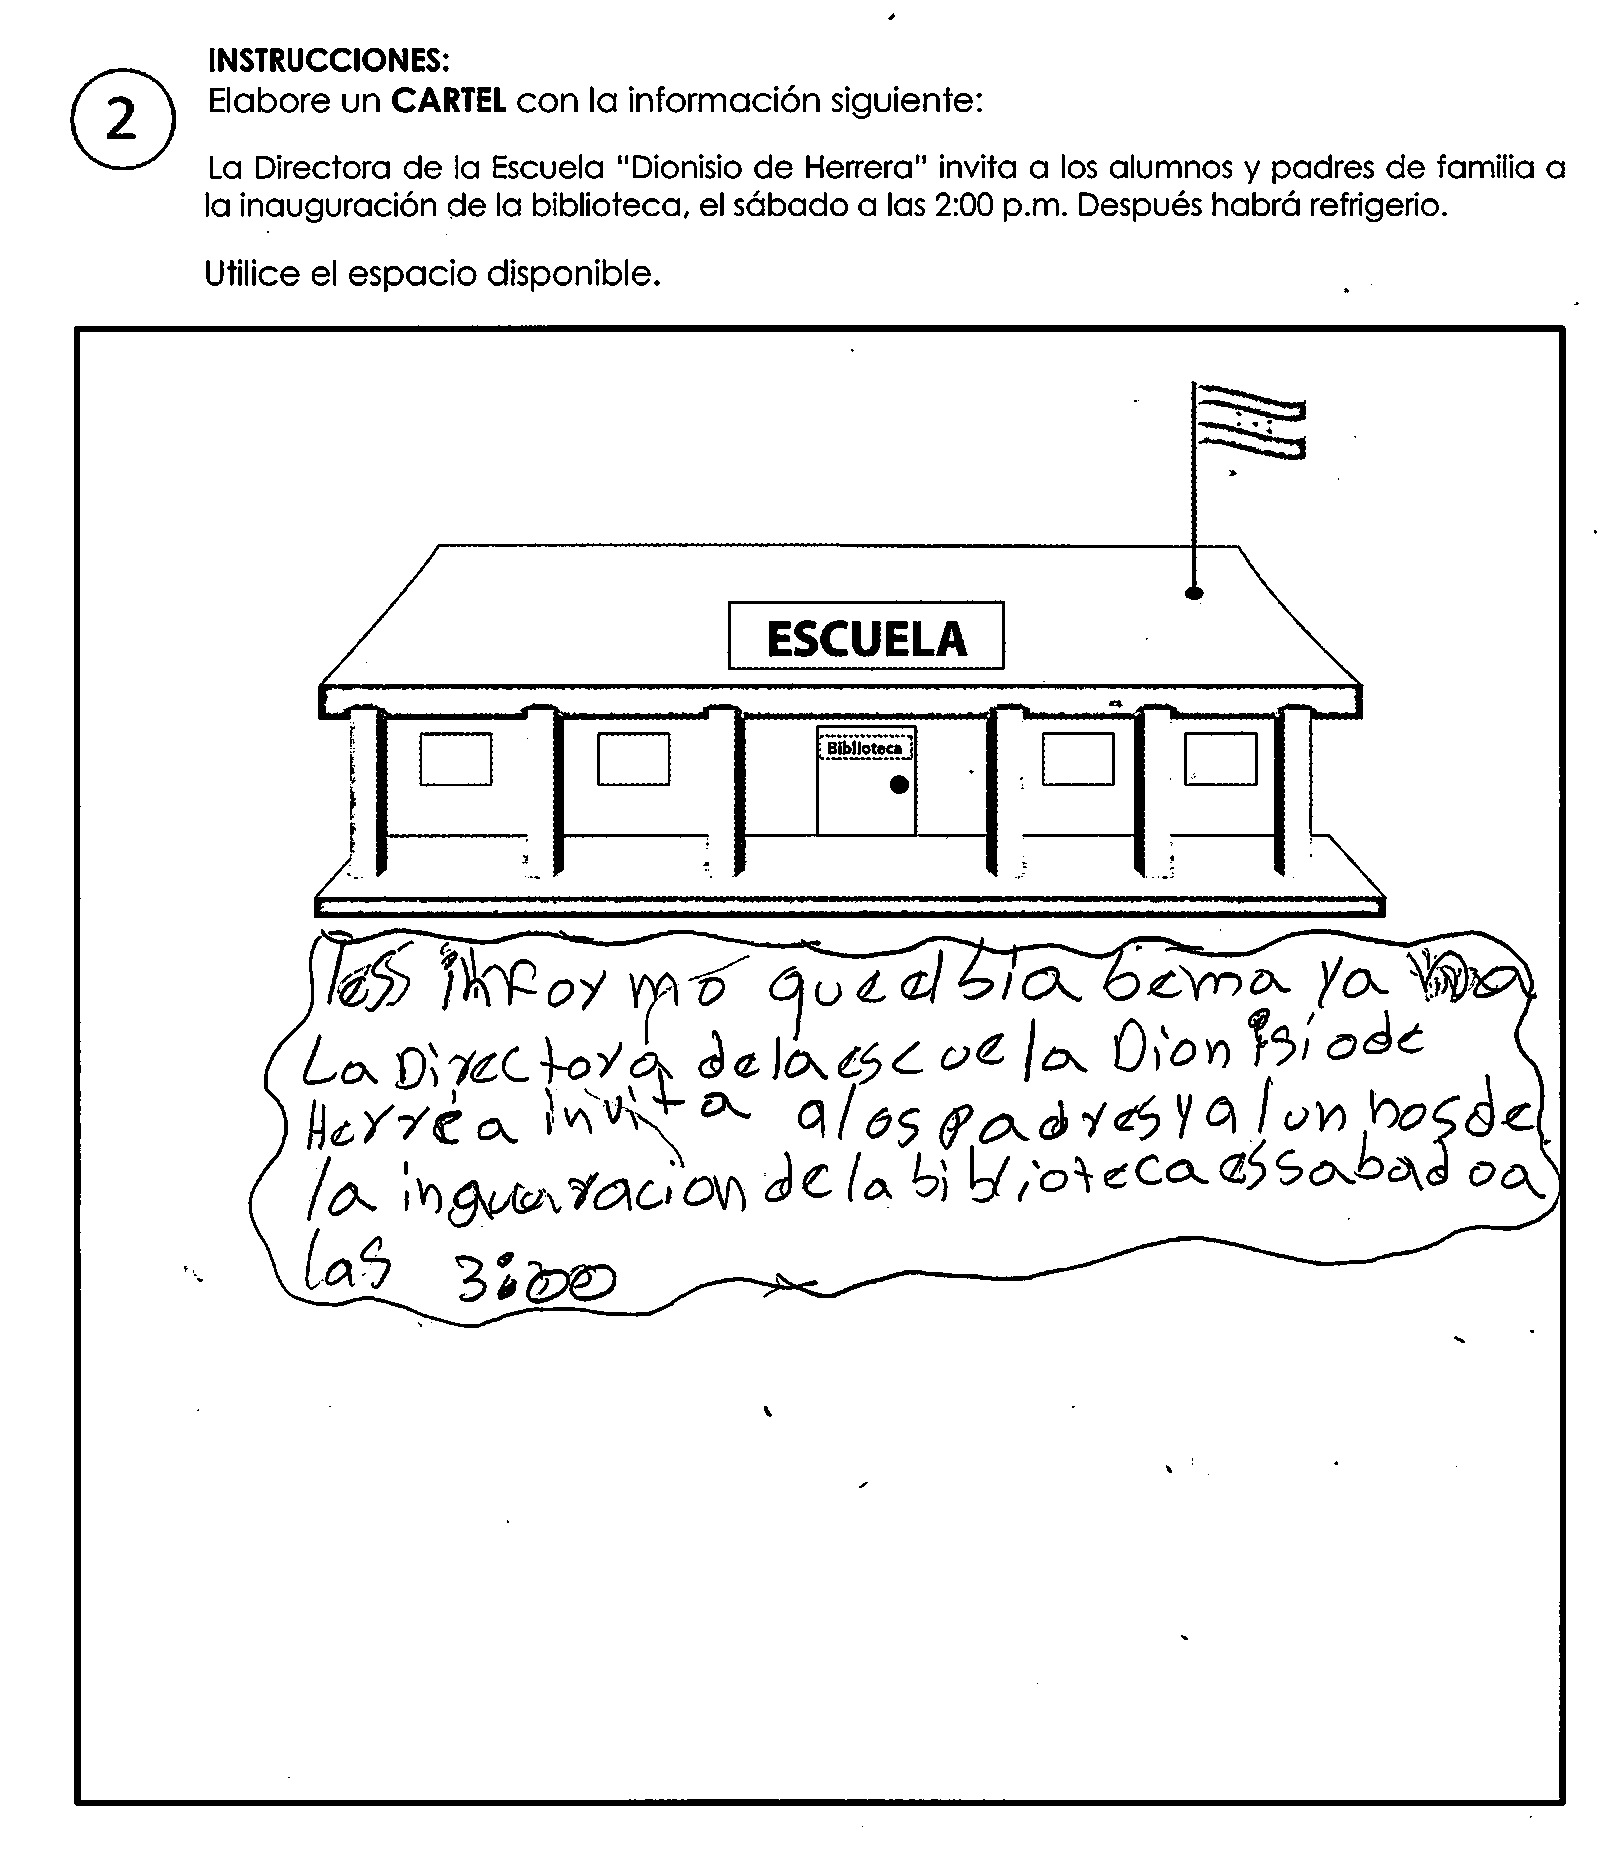 INSTRUCCIONES:
2
Elabore un CARTEL con la información siguiente:
La Directora de la Escuela "Dionisio de Herrera" invita a los alumnos y padres de familia a
la inauguración de la biblioteca, el sábado a las 2:00 p.m. Después habrá refrigerio.
Utilice el espacio disponible.
ESCUELA
Biblioteca
les informo que el bia bema ya
La Directora de la escuela Dionisio de
Herrea invita a los padres y alunnos de
la inguaracion de la biblioteca es sabado a
las 3:00